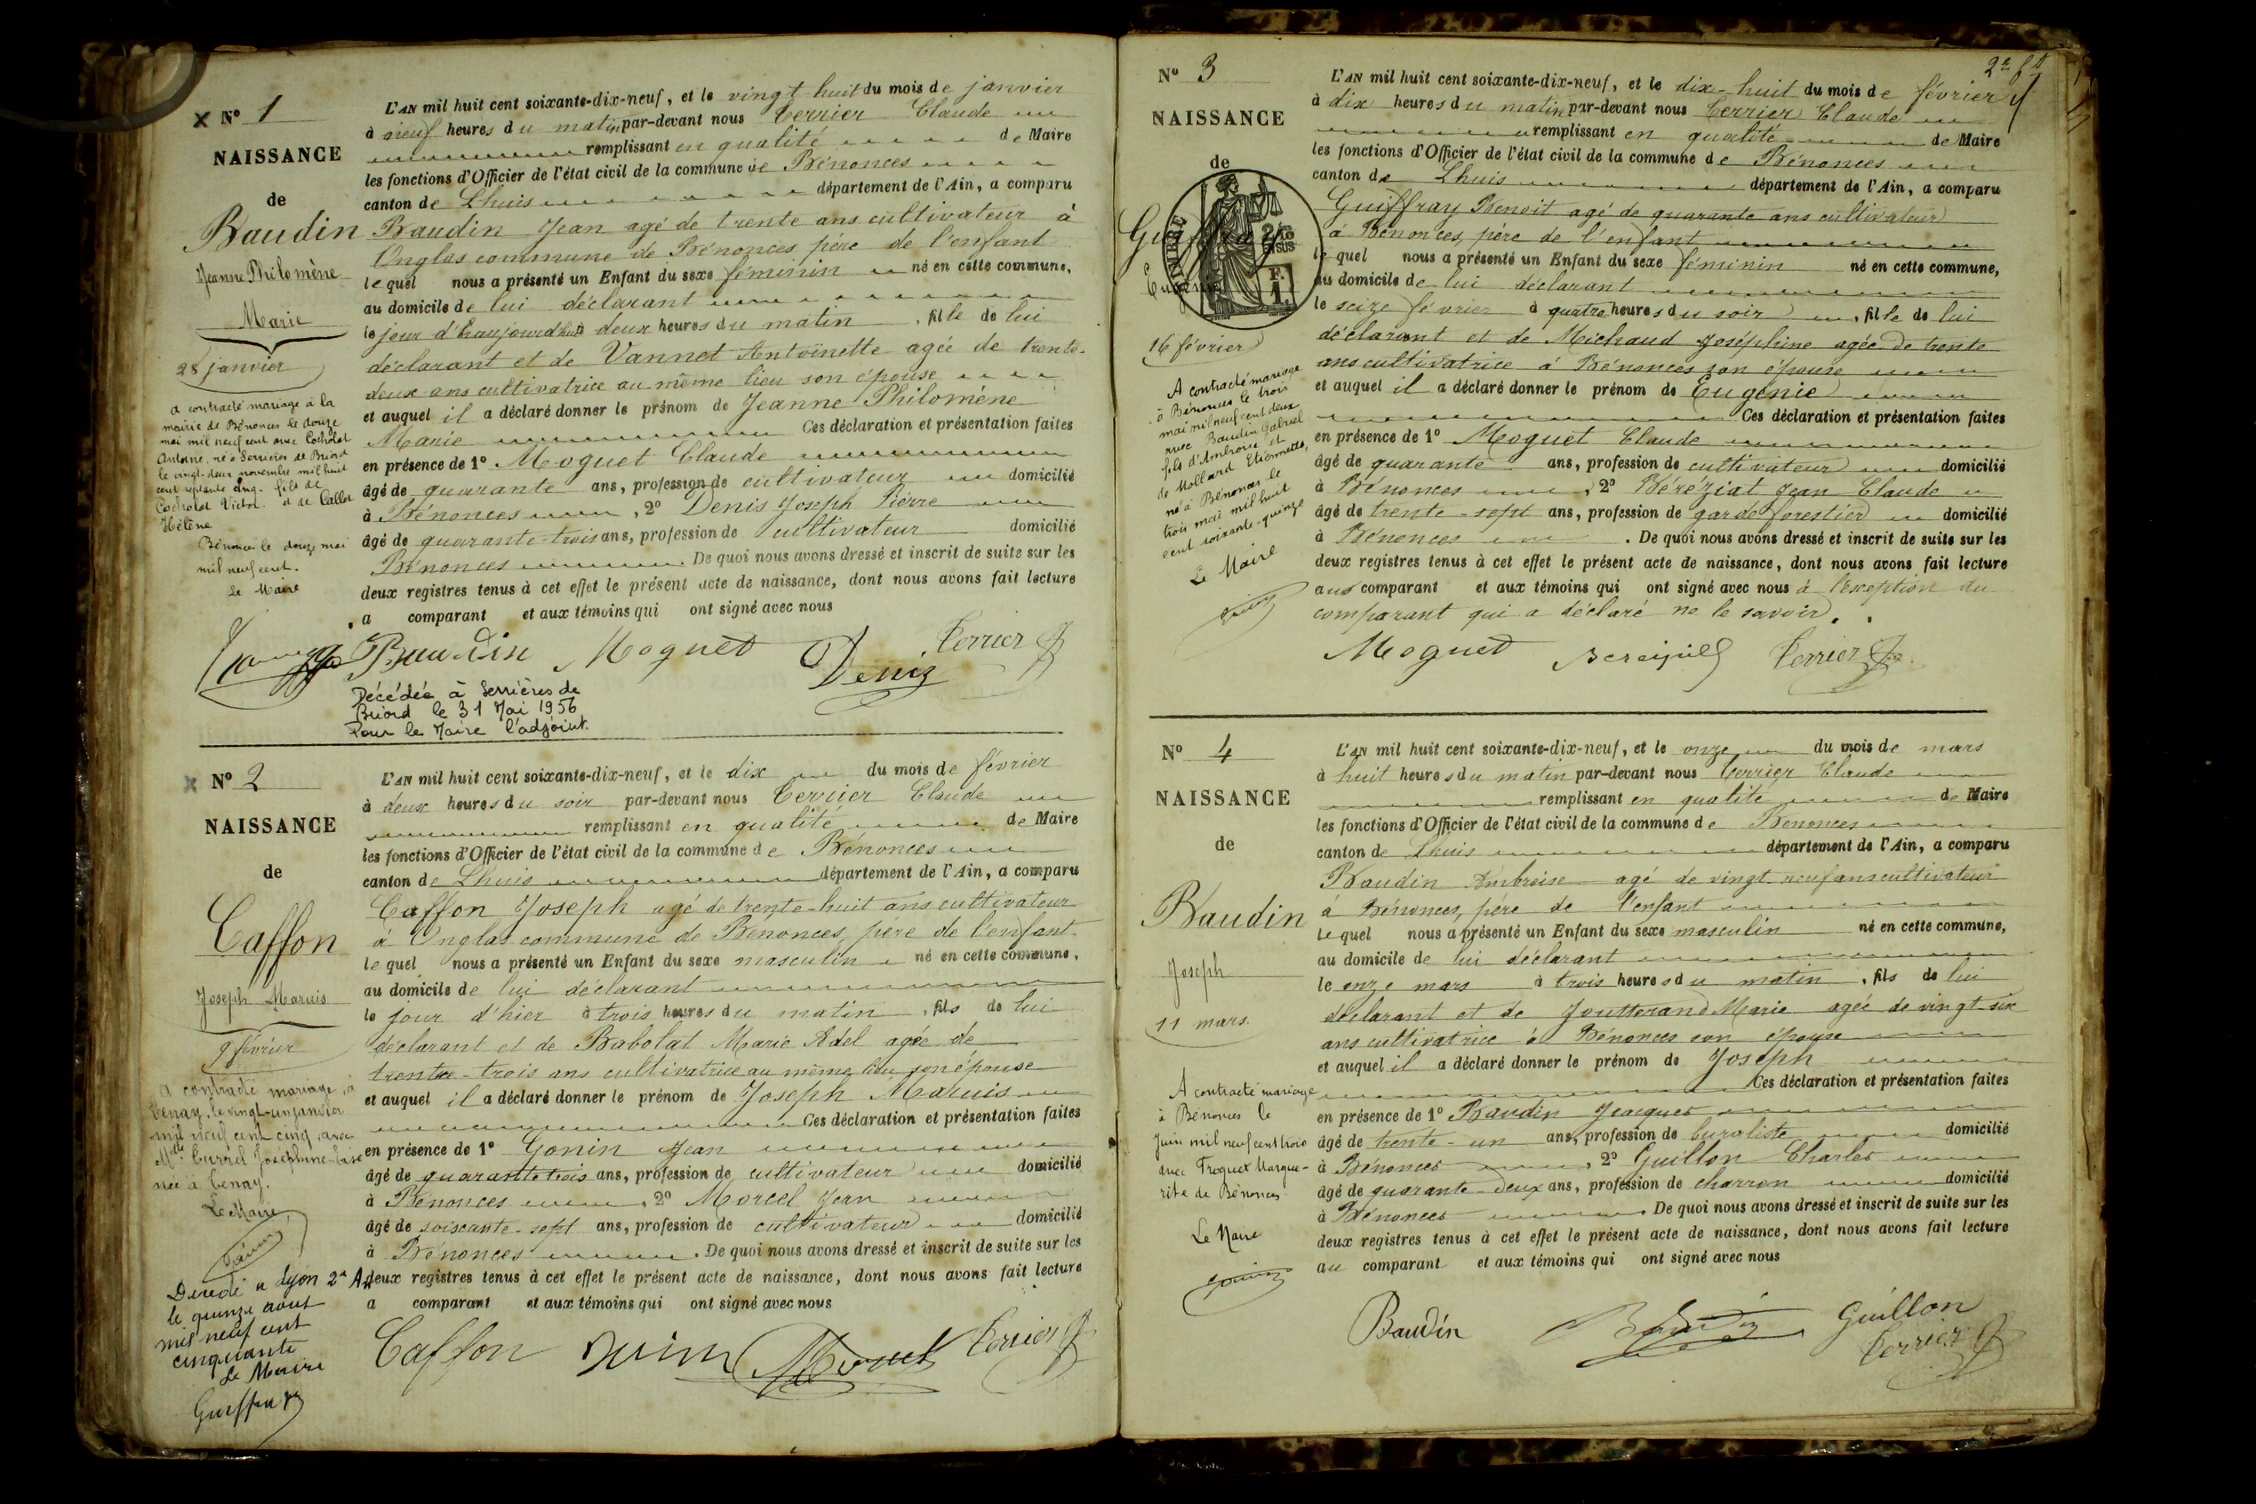 × Nº 1
NAISSANCE
de
Baudin
Jeanne Philomène
Marie
28 janvier
a contracté mariage à la
mairie de Bénonces le douze
mai mil neuf cent avec Cocholat
Antoine, né à Serrières de Briord
le vingt-deux novembre mil huit
cent septante cinq, fils de
Cocholat Victor et de Callet
Hélène
Bénonces le douze mai
mil neuf cent.
Le Maire
L'AN mil huit cent soixante-dix-neuf, et le vingt-huit du mois de janvier
à neuf heures du matin par-devant nous Terrier Claude
remplissant en qualité de Maire
les fonctions d'Officier de l'état civil de la commune de Bénonces
canton de Lhuis département de l'Ain, a comparu
Baudin Jean agé de trente ans cultivateur à
Onglas commune de Bénonces père de l'enfant
lequel nous a présenté un Enfant du sexe féminin né en cette commune,
au domicile de lui déclarant
le jour d'haujourdhui à deux heures du matin, fille de lui
déclarant et de Vannet Antoinette agée de trente-
deux ans cultivatrice au même lieu son épouse
et auquel il a déclaré donner le prénom de Jeanne Philomène
Marie Ces déclaration et présentation faites
en présence de 1º Moguet Claude
âgé de quarante ans, profession de cultivateur domicilié
à Bénonces, 2º Denis Joseph Pierre
âgé de quarante-trois ans, profession de cultivateur domicilié
Bénonces De quoi nous avons dressé et inscrit de suite sur les
deux registres tenus à cet effet le présent acte de naissance, dont nous avons fait lecture
a comparant et aux témoins qui ont signé avec nous
Baudin Moguet Denis Terrier
Décédée à Serrières de
Briord le 31 Mai 1956
Pour le Maire l'adjoint.
× Nº 2
NAISSANCE
de
Caffon
Joseph Maruis
9 février
a contracté mariage à
Tenay, le vingt-un janvier
mil neuf cent cinq, avec
Mlle Curvel Joséphine
née à Tenay.
Le Maire
Décédé à Lyon 2e Ar
le quinze aout
mil neuf cent
cinquante
Le Maire
Guiffray
L'AN mil huit cent soixante-dix-neuf, et le dix du mois de février
à deux heures du soir par-devant nous Terrier Claude
remplissant en qualité de Maire
les fonctions d'Officier de l'état civil de la commune de Bénonces
canton de Lhuis département de l'Ain, a comparu
Caffon Joseph agé de trente-huit ans cultivateur
à Onglas commune de Bénonces, père de l'enfant
lequel nous a présenté un Enfant du sexe masculin né en cette commune,
au domicile de lui déclarant
le jour d'hier à trois heures du matin, fils de lui
déclarant et de Babolat Marie Adel agée de
trente-trois ans cultivatrice au même lieu son épouse
et auquel il a déclaré donner le prénom de Joseph Maruis
Ces déclaration et présentation faites
en présence de 1º Gonin Jean
âgé de quarante trois ans, profession de cultivateur domicilié
à Bénonces, 2º Morcel Jean
âgé de soiscante-sept ans, profession de cultivateur domicilié
à Bénonces. De quoi nous avons dressé et inscrit de suite sur les
deux registres tenus à cet effet le présent acte de naissance, dont nous avons fait lecture
a comparant et aux témoins qui ont signé avec nous
Caffon Terrier
2e ft
Nº 3
NAISSANCE
de
TIMBRE
2/10 EN SUS
F. 1.
16 février
A contracté mariage
à Bénonces le trois
mai mil neuf cent deux
avec Baudin Gabriel
fils d'Ambroise et
de Mollard Etiennette,
né à Bénonces le
trois mai mil huit
cent soixante-quinze
Le Maire
L'AN mil huit cent soixante-dix-neuf, et le dix-huit du mois de février
à dix heures du matin par-devant nous Terrier Claude
remplissant en qualité de Maire
les fonctions d'Officier de l'état civil de la commune de Bénonces
canton de Lhuis département de l'Ain, a comparu
Guiffray Benoit agé de quarante ans cultivateur
à Bénonces, père de l'enfant
lequel nous a présenté un Enfant du sexe féminin né en cette commune,
au domicile de lui déclarant
le seize février à quatre heures du soir, fille de lui
déclarant et de Michaud Joséphine agée de trente
ans cultivatrice à Bénonces son épouse
et auquel il a déclaré donner le prénom de Eugénie
Ces déclaration et présentation faites
en présence de 1º Moguet Claude
âgé de quarante ans, profession de cultivateur domicilié
à Bénonces, 2º Béréziat Jean Claude
âgé de trente-sept ans, profession de garde forestier domicilié
à Bénonces. De quoi nous avons dressé et inscrit de suite sur les
deux registres tenus à cet effet le présent acte de naissance, dont nous avons fait lecture
aus comparant et aux témoins qui ont signé avec nous à l'exception du
comparant qui a déclaré ne le savoir.
Moguet Terrier
Nº 4
NAISSANCE
de
Baudin
Joseph
11 mars.
A contracté mariage
à Bénonces le
juin mil neuf cent trois
avec Froquet Margue-
rite de Bénonces
Le Maire
L'AN mil huit cent soixante-dix-neuf, et le onze du mois de mars
à huit heures du matin par-devant nous Terrier Claude
remplissant en qualité de Maire
les fonctions d'Officier de l'état civil de la commune de Bénonces
canton de Lhuis département de l'Ain, a comparu
Baudin Ambroise agé de vingt neuf ans cultivateur
à Bénonces, père de l'enfant
lequel nous a présenté un Enfant du sexe masculin né en cette commune,
au domicile de lui déclarant
le onze mars à trois heures du matin, fils de lui
déclarant et de Joutterand Marie agée de vingt-six
ans cultivatrice à Bénonces son épouse
et auquel il a déclaré donner le prénom de Joseph
Ces déclaration et présentation faites
en présence de 1º Baudin Jacques
âgé de trente-un ans, profession de buraliste domicilié
à Bénonces, 2º Guillon Charles
âgé de quarante-deux ans, profession de charron domicilié
à Bénonces. De quoi nous avons dressé et inscrit de suite sur les
deux registres tenus à cet effet le présent acte de naissance, dont nous avons fait lecture
au comparant et aux témoins qui ont signé avec nous
Baudin Baudin Guillon
Terrier